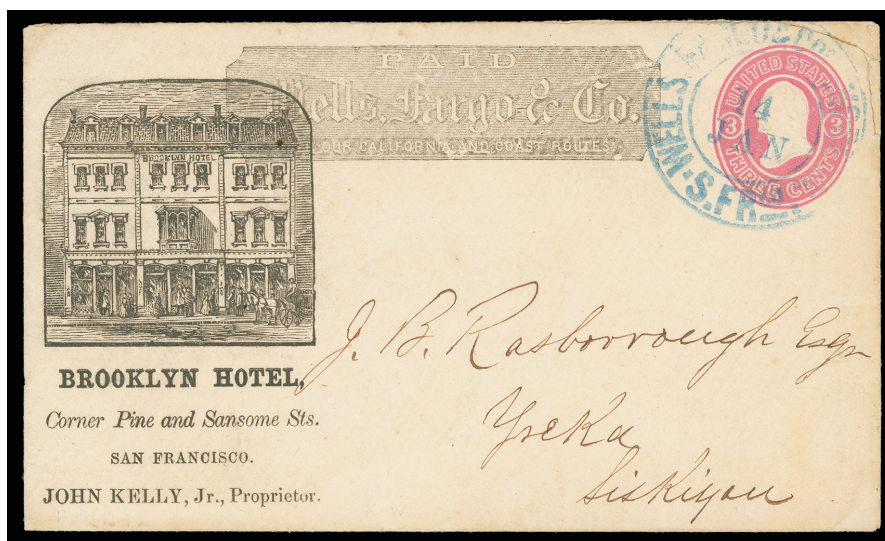 PAID
Wells, Fargo & Co.
OUR CALIFORNIA AND COAST ROUTES.
UNITED STATES
3 3
THREE CENTS
WELLS
14
JAN
S. FR
BROOKLYN HOTEL
BROOKLYN HOTEL,
Corner Pine and Sansome Sts.
SAN FRANCISCO.
JOHN KELLY, Jr., Proprietor.
J. B. Rasborrough Esqr
Yreka
Siskiyou